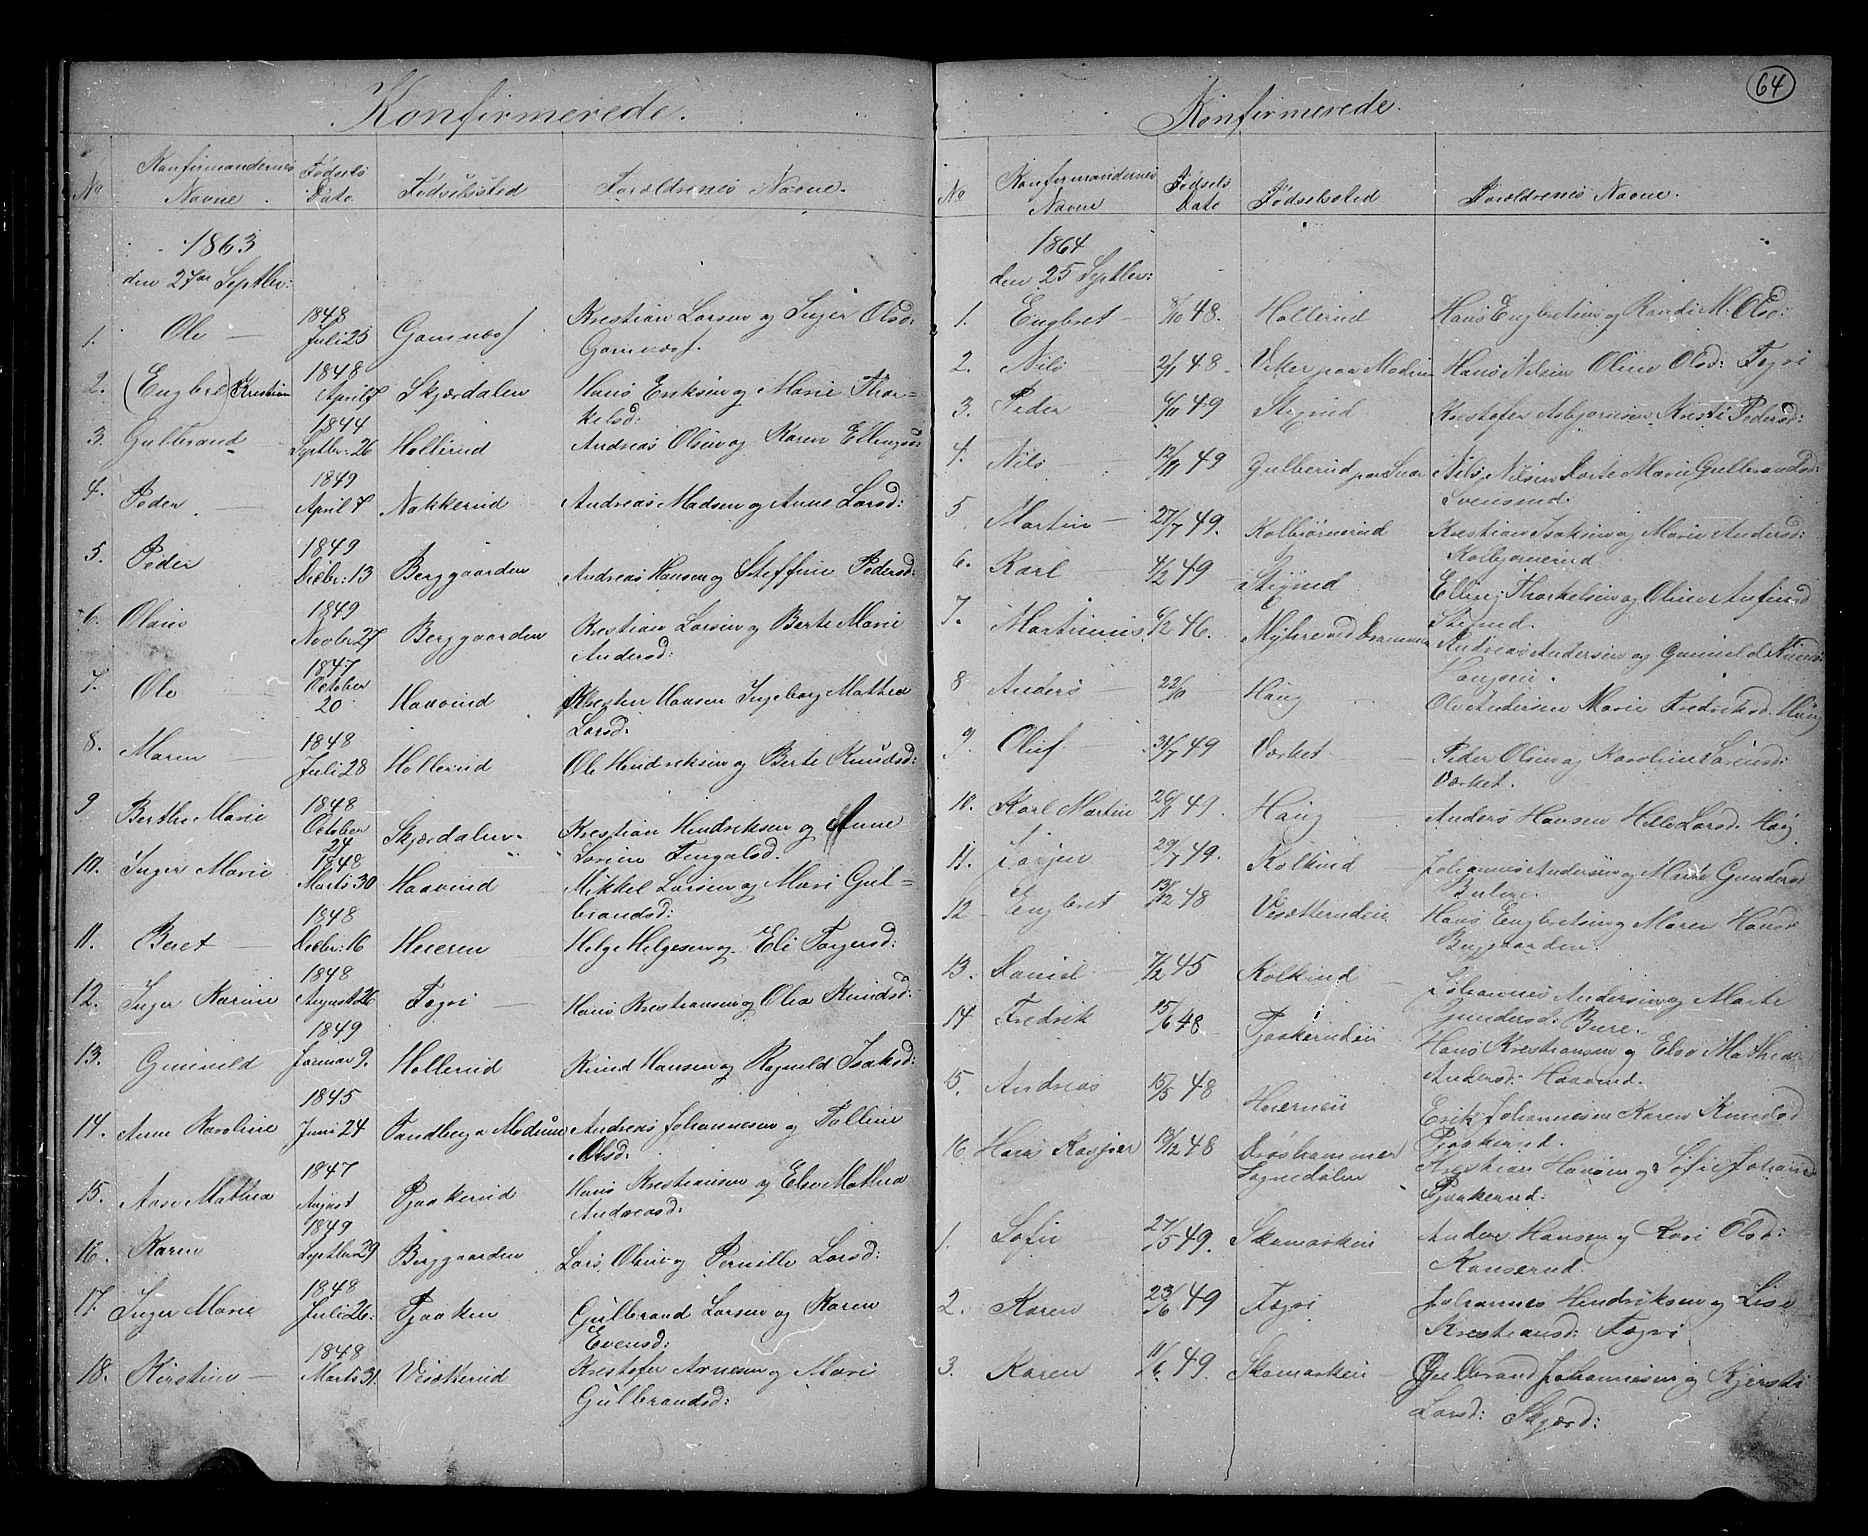 Konfirmerede.
No Konfirmandernes Navne. Fødsels Dato Fødselssted Forældrenes Navne.
1863
den 27de Septbr:
1. Ole — 1848 Juli 25 Gomnæs Krestian Larsen og Inger Olsd:
Gomnæs.
2. (Engbret) Krestian 1848 April 7 Skjærdalen Hans Eriksen og Marie Thor=
kelsd:
3. Gulbrand 1844 Septbr. 26 Hollerud Andreas Olsen og Karen Ellingsd:
4. Peder — 1849 April 4 Nakkerud Andreas Madsen og Anne Larsd:
5. Peder 1849 Decbr: 13 Berggaarden Andreas Hansen og Steffine Pedersd:
6. Olaus 1849 Novbr 27 Berggaarden Krestian Larsen og Berte Marie
Andersd:
7. Ole — 1847 October 20 Haavind Kresten Hansen Ingeborg Mathea
Larsd.
8. Maren — 1848 Juli 28 Hollerud Ole Hendriksen og Berte Knudsd:
9 Berthe Marie 1848 October 24 Skjærdalen Krestian Hendriksen og Anne
Sorine Fingalsd.
10. Inger Marie 1848 Marts 30 Haavind Mikkel Larsen og Mari Gul=
brandsd:
11. Beret — 1848 Decbr: 16 Heieren Helge Helgesen og Eli Torgersd:
12. Inger Karine 1848 August 26 Fegri — Hans Krestiansen og Olea Knudsd:
13. Gunild 1849 Januar 9. Hollerud Knud Hansen og Ragnild Isaksd:
14. Anne Karoline 1845 Juni 24 Sandberg a Modum Andreas Johannesen og Talline
Olsd.
15. Aase Mathea 1847 August Pjaakerud Hans Krestiansen og Else Mathea
Andreasd:
16. Karen 1849 Septbr 29 Berggaarden Lars Olsen og Pernille Larsd:
17. Inger Marie 1848 Juli 26. Pjaaken Gulbrand Larsen og Karen
Evensd:
18. Kirstine — 1848 Marts 31. Vesætrud Krestofer Arnesen og Mari
Gulbrandsd:
64
Konfirmerede.
No Konfirmandernes Navne Fødsels Dato Fødselssted Forældrenes Navne.
1864
den 25 Septbr:
1. Engbret — 8/10 48. Hollerud Hans Engbretsen og Randi M. Olsd:
2. Nils 2/1 48 Viker paa Modum Hans Nilsen Oline Olsd: Fegri
3. Peder 49 Stigrud Krestofer Asbjørnsen Kresti Pedersd:
4. Nils 12/11 49 Gulberud paa Snar Nils Nilsen Dorte Marie Gulbrandsd:
Svensrud.
5 Martin — 27/7 49. Kolbjørnsrud Krestian Isaksen og Marie Andersd:
Kolbjørnsrud
6. Karl 4/2 49 Stigrud Elling Thorkelsen og Oline Anfind
Stigrud.
7. Martinius 6/2 46. Myhre ved Drammen Andreas Andersen og Gunild Knuds
8 Anders — Haug — Ole Andersen Marie Fredriksd. Haug
9. Oluf — 31/7 49 Værket — Peder Olsen og Karoline Sørensd:
Værket.
10. Karl Martin 26/11 49. Haug Anders Hansen Helle Larsd. Haug
11. Jørgen 29/7 49. Kolkind Johannes Andersen og Marte Gundersd
12 Engbret 13/12 48 Vesætterudeie Hans Engbretsen og Maren Hansd:
Berggaarden.
13. Daniel 7/2 45 Kolkind — Johannes Andersen og Marte
Gundersd: Bure.
14 Fredrik 15/6 48 Pjaakerudeie Hans Krestiansen og Else Mathea
Andersd: Haavind.
15. Andreas 15/5 48 Heiereneie Erik Johannesen Karen Knudsd
Pjaakerud.
16. Hans Kasper 13/12 48 Døvshammer
Sognedalen Krestian Hansen og Sofie Johand
Pjaakerud.
1. Sofie 27/5 49. Skamarkeie Anders Hansen og Kari Olsd:
2. Karen 23/6 49 Fegri Johannes Hendriksen og Lise
Krestiansd: Fegri
3. Karen 11/6. 49. Skamarkeie Gulbrand Johannesen og Kjersti
Larsd: Skjærd: